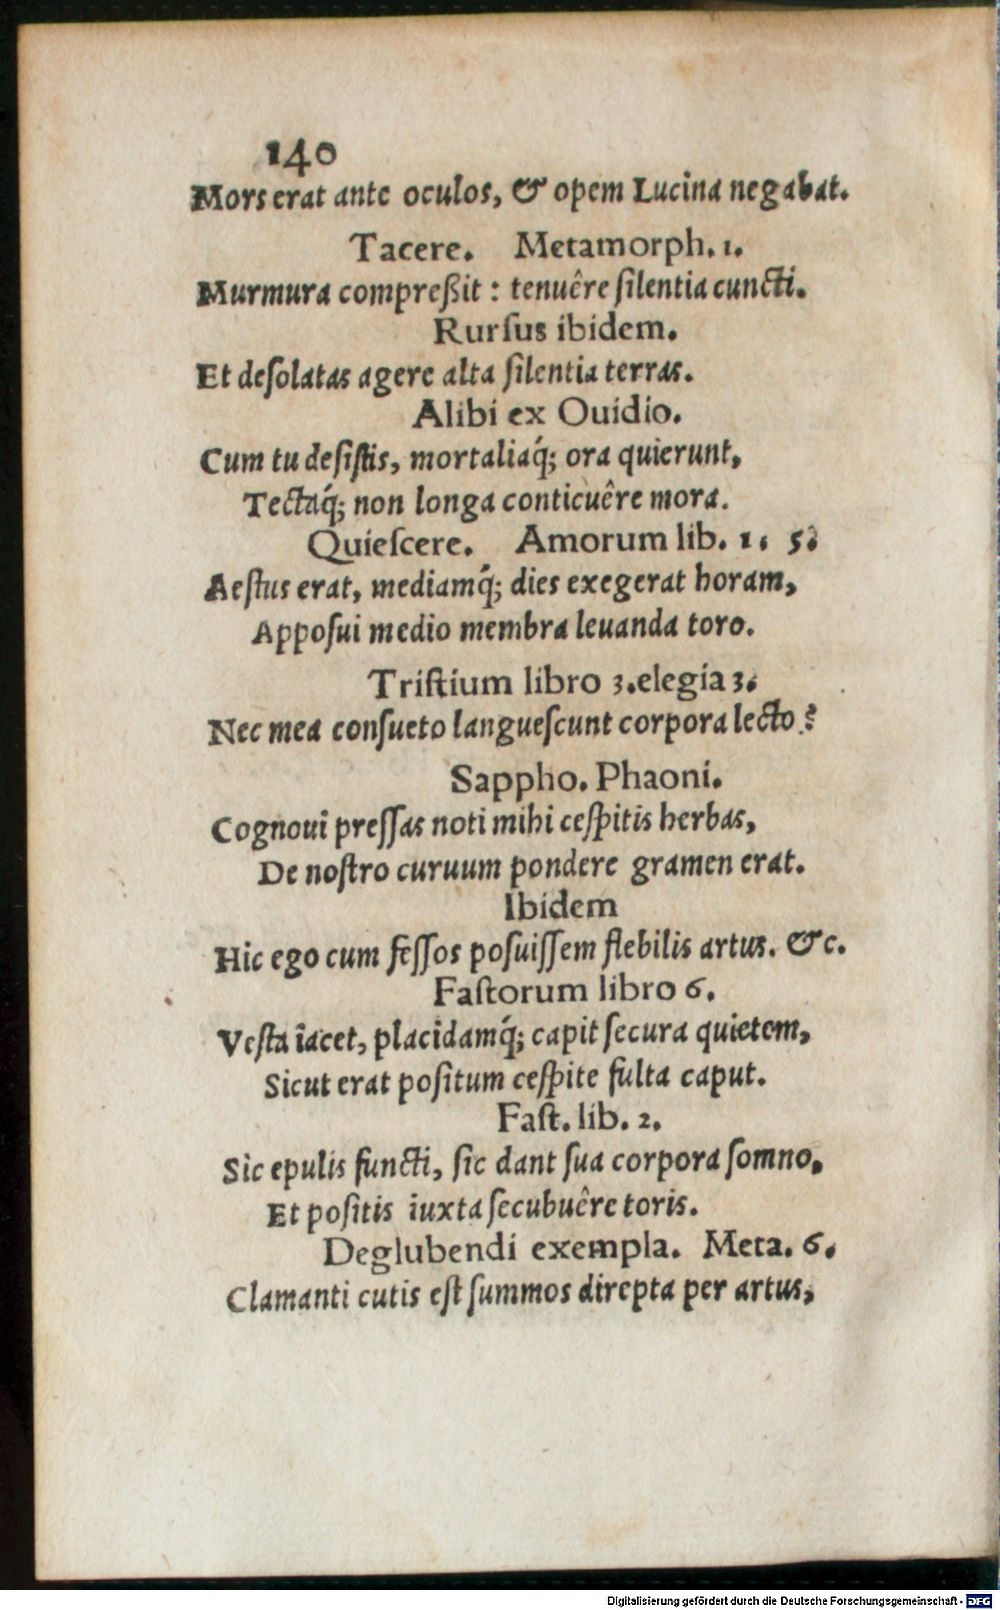 140
Mors erat ante oculos, & opem Lucina negabat.
Tacere. Metamorph. 1.
Murmura compreßit : tenuêre ſilentia cuncti.
Rurſus ibidem.
Et deſolatas agere alta ſilentia terras.
Alibi ex Ouidio.
Cum tu deſiſtis, mortaliaq́; ora quierunt,
Tectaq́; non longa conticuêre mora.
Quieſcere. Amorum lib. 1. 5.
Aeſtus erat, mediamq́; dies exegerat horam,
Appoſui medio membra leuanda toro.
Triſtium libro 3. elegia 3.
Nec mea conſueto langueſcunt corpora lecto?
Sappho. Phaoni.
Cognoui preſſas noti mihi ceſpitis herbas,
De noſtro curuum pondere gramen erat.
Ibidem
Hic ego cum feſſos poſuiſſem flebilis artus. &c.
Faſtorum libro 6.
Veſta iacet, placidamq́; capit ſecura quietem,
Sicut erat poſitum ceſpite fulta caput.
Faſt. lib. 2.
Sic epulis functi, ſic dant ſua corpora ſomno,
Et poſitis iuxta ſecubuêre toris.
Deglubendi exempla. Meta. 6.
Clamanti cutis eſt ſummos direpta per artus,
Digitalisierung gefördert durch die Deutsche Forschungsgemeinschaft - DFG